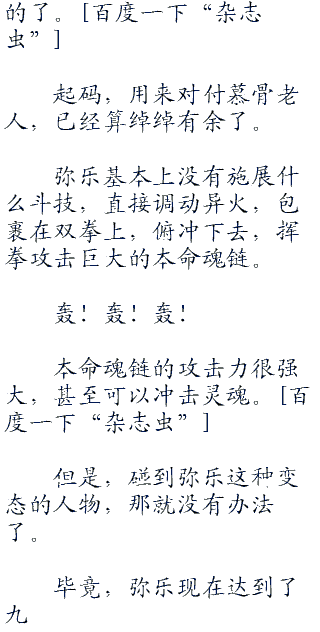 的了。[百度一下“杂志
虫”]
起码，用来对付慕骨老
人，已经算绰绰有余了。
弥乐基本上没有施展什
么斗技，直接调动异火，包
裹在双拳上，俯冲下去，挥
拳攻击巨大的本命魂链。
轰！轰！轰！
本命魂链的攻击力很强
大，甚至可以冲击灵魂。[百
度一下“杂志虫”]
但是，碰到弥乐这种变
态的人物，那就没有办法
了。
毕竟，弥乐现在达到了
九